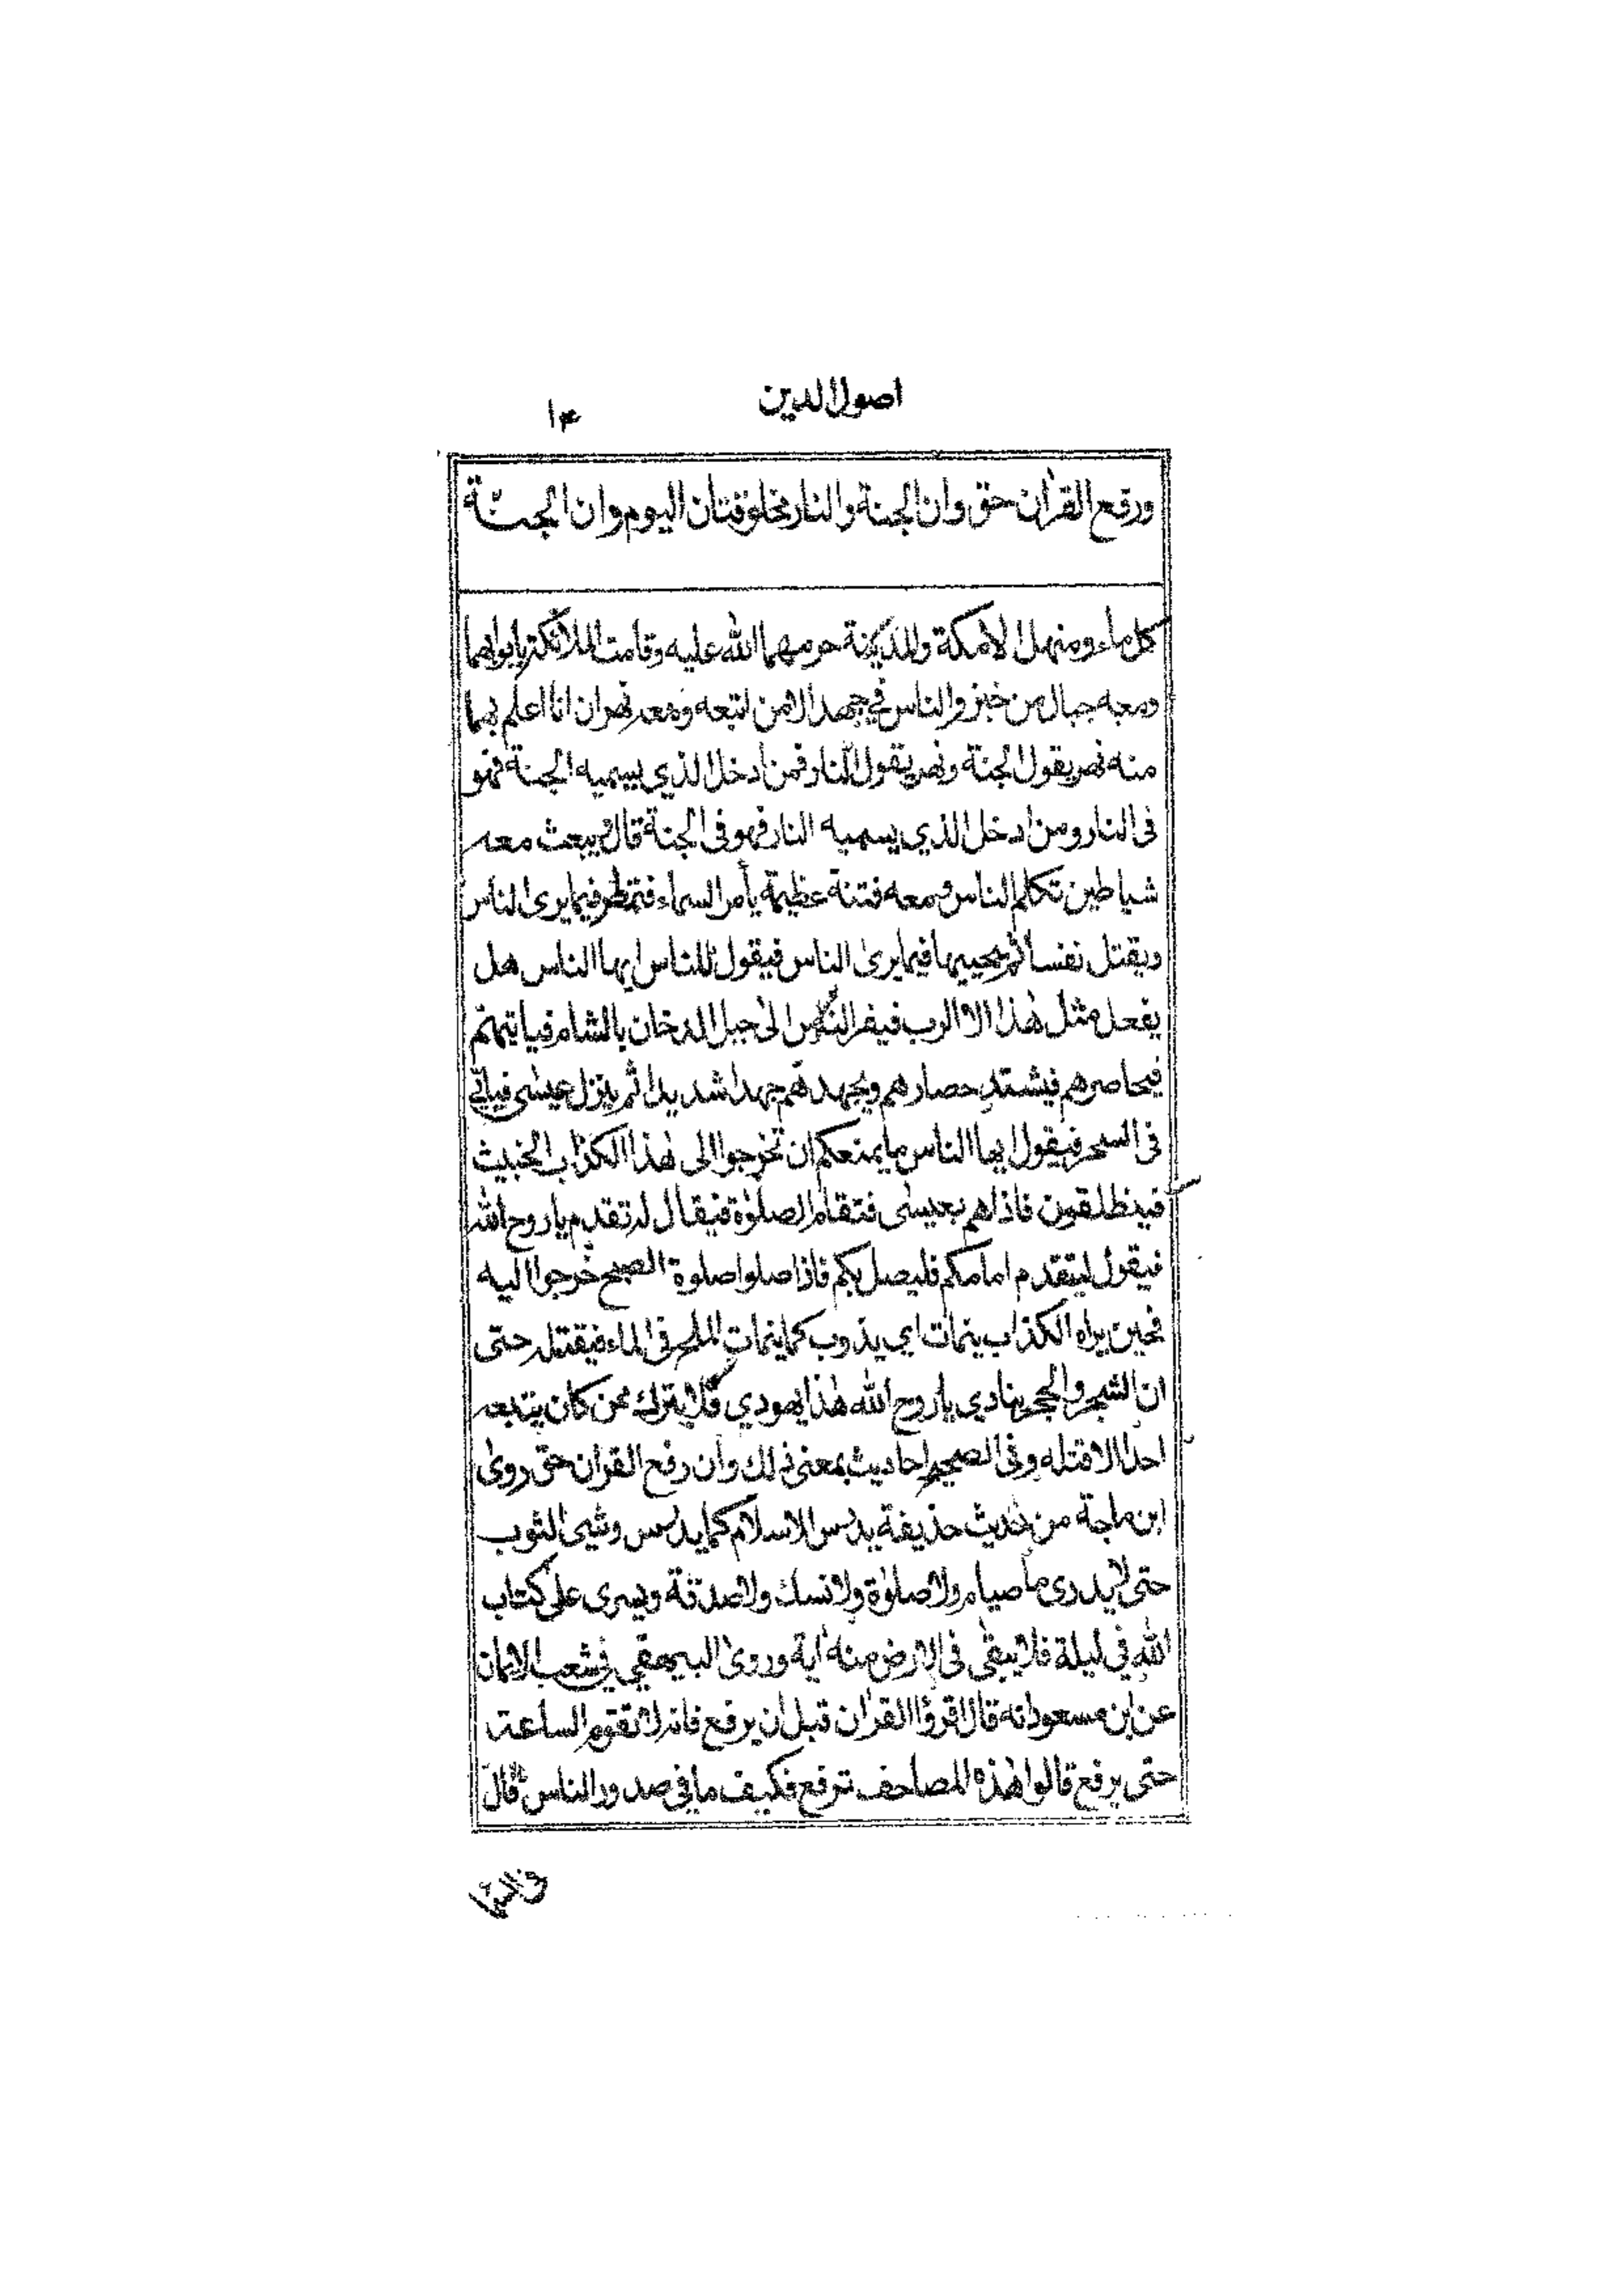 اصول الدين
١٤
ورفع القرأن حق وان الجنة والنار مخلوقتان اليوم وان الجنة
كل ماء ومنهل الا مكة والمدينة حرمهما الله عليه وقامت الملائكة بابوابهما
ومعه جبال من خبز والناس في جهد الا من اتبعه ومعه نهران انا اعلم بهما
منه نهر يقول الجنة ونهر يقول النار فمن ادخل الذي يسميه الجنة فهو
فى النار ومن ادخل الذي يسميه النار فهو فى الجنة قال يبعث معه
شياطين تكلم الناس ومعه فتنة عظيمة يأمر السماء فتمطر فيما يرى الناس
ويقتل نفسا ثم يحييها فيما يرى الناس فيقول للناس ايها الناس هل
يفعل مثل هٰذا الا الرب فيفر الناس الى جبل الدخان بالشام فياتيهم
فيحاصرهم فيشتد حصارهم ويجهدهم جهدا شديدا ثم ينزل عيسٰى فياتي
فى السحر فيقول ايها الناس ما يمنعكم ان تخرجوا الى هٰذا الكذاب الخبيث
فينطلقون فاذا هم بعيسٰى فتقام الصلوٰة فيقال له تقدم يا روح الله
فيقول ليتقدم امامكم فليصل بكم فاذا صلوا صلوة الصبح خرجوا اليه
فحين يراه الكذاب ينماث اي يذوب كما ينماث الملح فى الماء فيقتله حتى
ان الشجر والحجر ينادي يا روح الله هٰذا يهودي فلا يترك ممن كان يتبعه
احدا الا قتله وفى الصحيح احاديث بمعنى ذلك وان رفع القران حق روٰى
ابن ماجة من حديث حذيفة يدرس الاسلام كما يدرس وشى الثوب
حتى لا يدرى ما صيام ولا صلوٰة ولا نسك ولا صدقة ويسرى على كتاب
الله في ليلة فلا يبقٰى فى الارض منه اٰية وروى البيهقي في شعب الايمان
عن ابن مسعود انه قال اقرؤا القراٰن قبل ان يرفع فانه لا تقوم الساعة
حتى يرفع قالوا هٰذه المصاحف ترفع فكيف ما فى صدور الناس قال